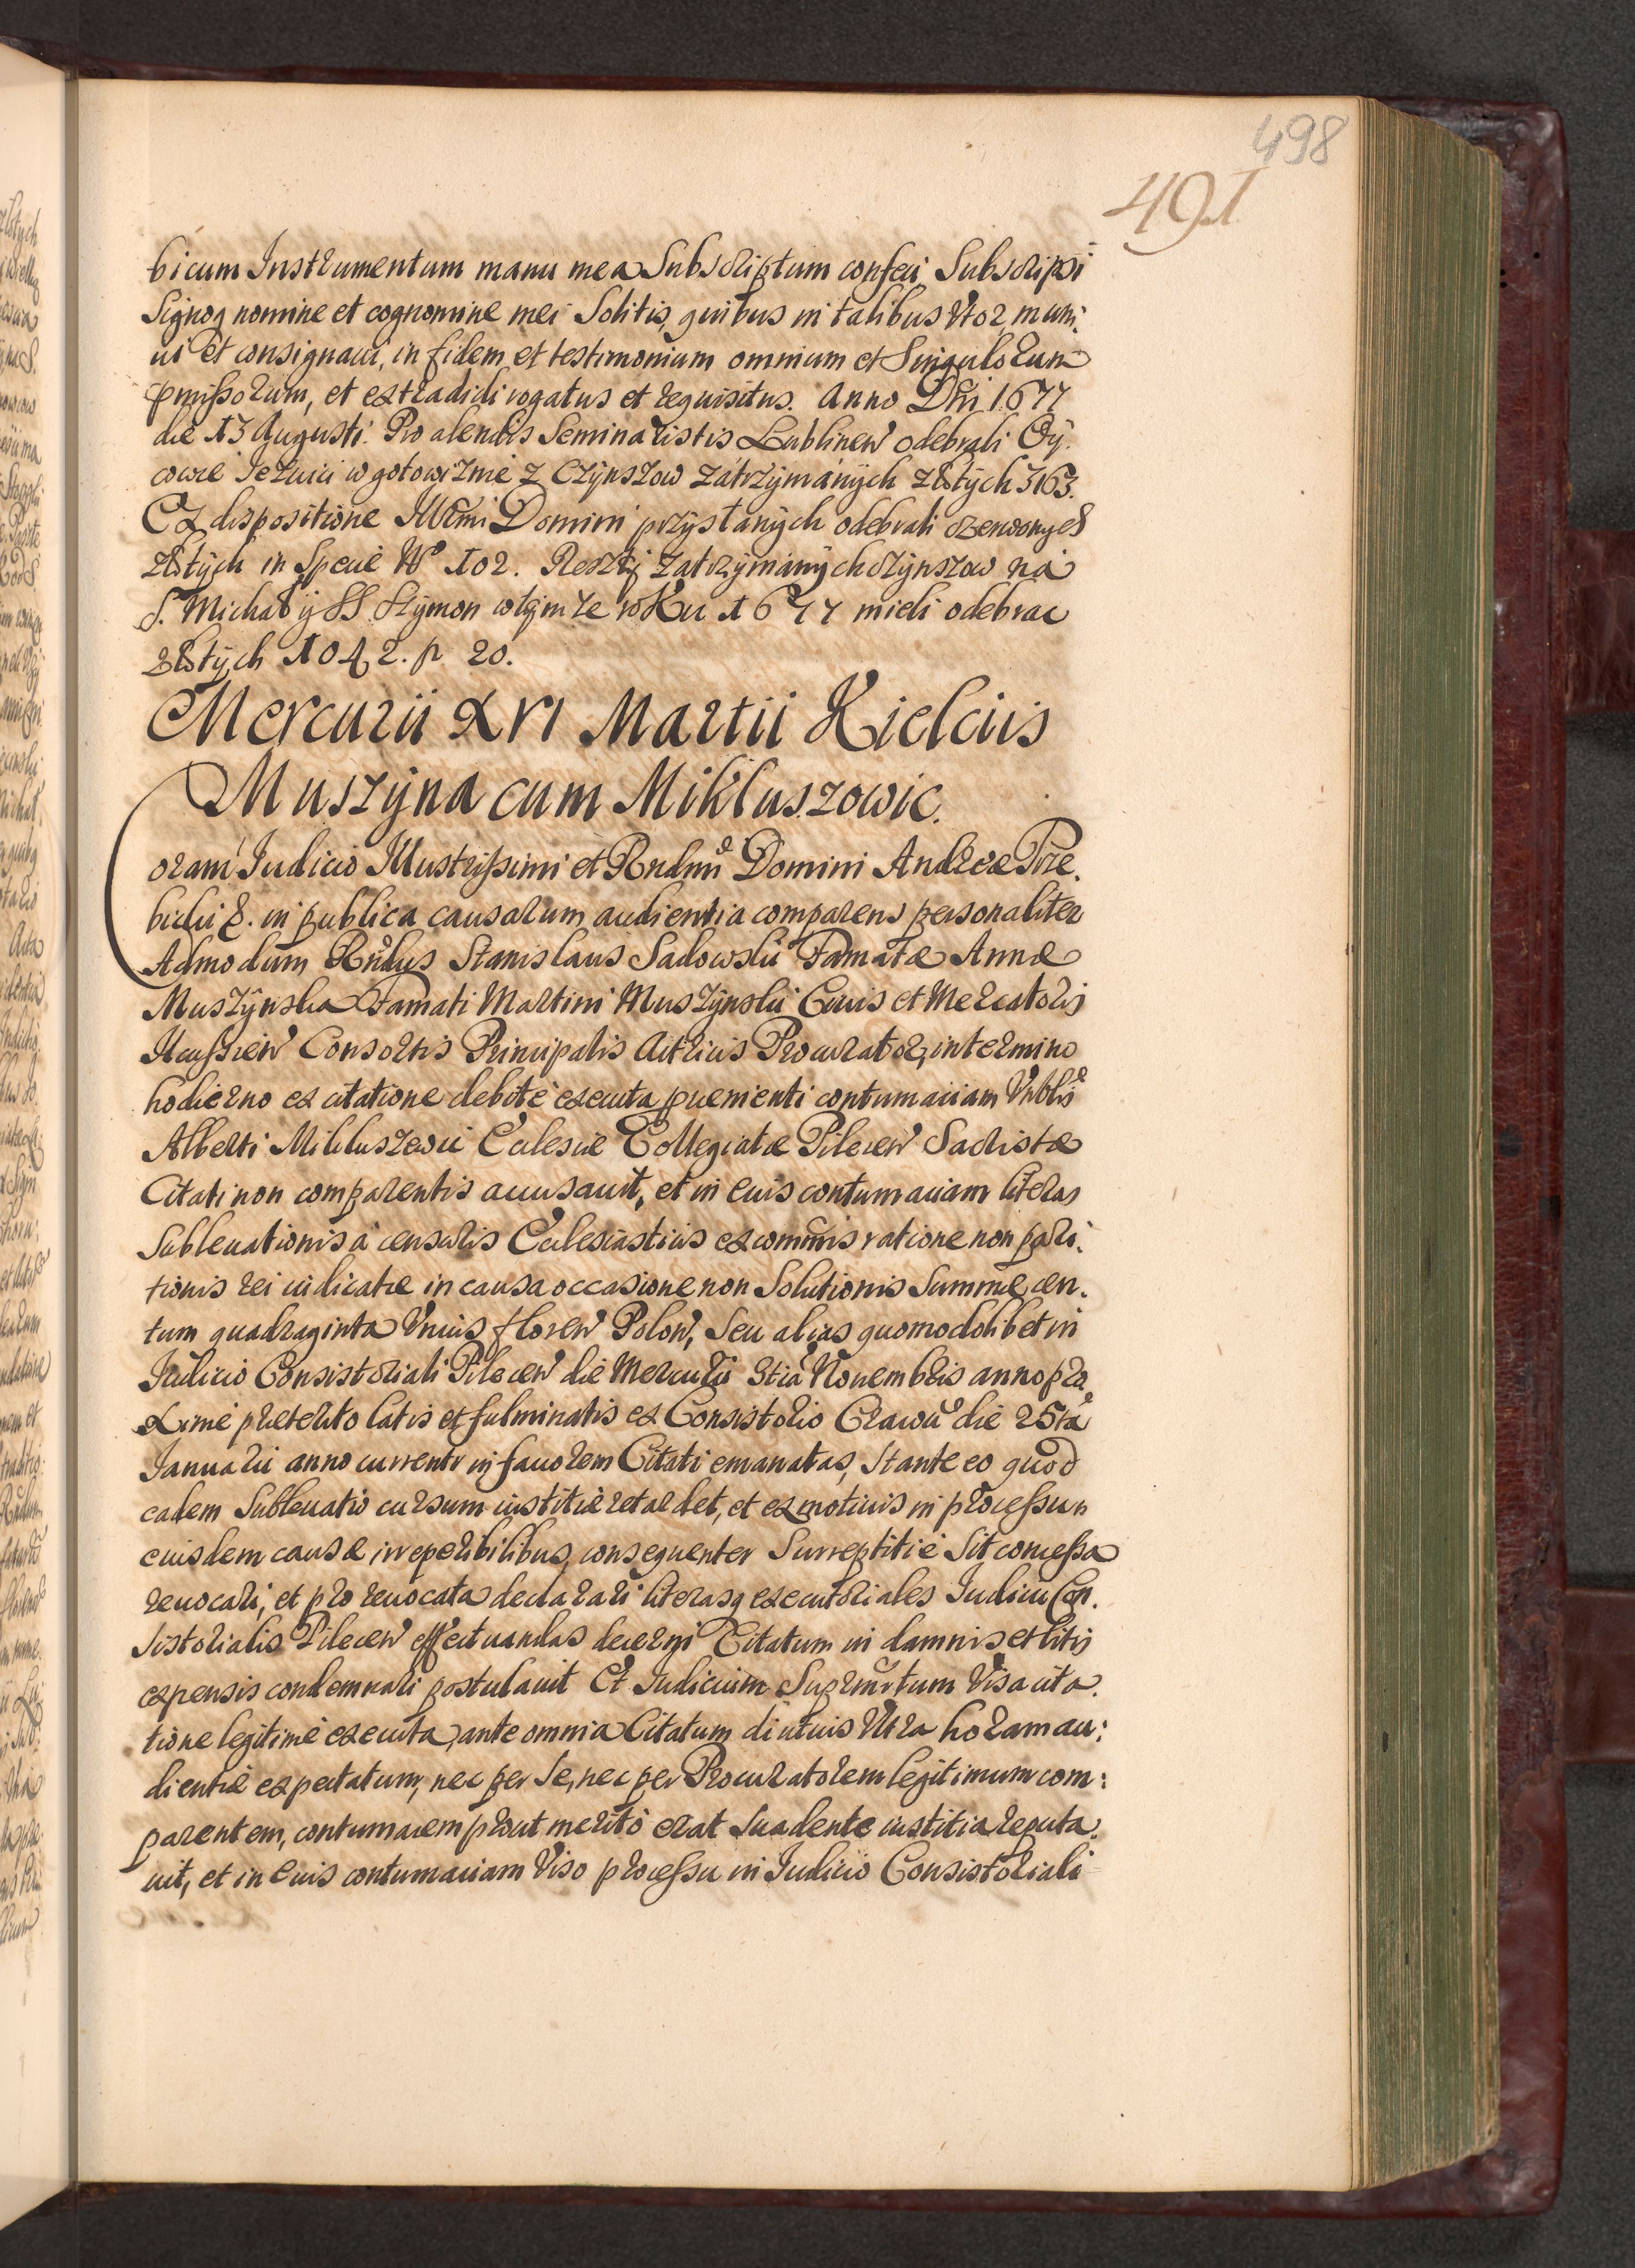 498
491
bicum Instrumentum manu mea Subscriptum confeci, Subscripsi
Signoq nomine et cognomine mei Solitis, quibus in talibus Vtor, muni,
ui et consignaui, in fidem et testimonium omnium et Singulorum
pmissorum, et extradidi rogatus et requisitus. Anno Dni 1677
die 13 Augusti. Pro alendis Seminaristis Lublinen odebrali Oy,
cowie Jezuici w gotowiznie z Czynszow zátrzymánych złotych 3163.
Ex dispositione Illmi Domini przystánych odebrali czerwonych
złotych in Specie No 102. Reszty zatrzymánych czynszow ná
S. Michał y SS Szymon w tymze roku 1677 mieli odebrac
złotych 1042. p 20.
Mercurii XVI Martii Kielciis
Muszyna cum Mikluszowic.
Coram Iudicio Illustrissimi et Rndmi Domini Andreæ Trze,
bicki &. in publica causarum audientia comparens personaliter
Admodum Rndus Stanislaus Sadowski Famatæ Annæ
Muszynska Famati Martini Muszynski Ciuis et Mercatoris
Ilcussien Consortis Principalis Actricis Procurator, in termino
hodierno ex citatione debitè executa pueniente contumaciam Vnblis
Alberti Mikluszewic Ecclesiæ Collegiatæ Pilecen Sacristæ
Citati non comparentis accusauit, et in eius contumaciam literas
Subleuationis à censuris Ecclesiasticis excommis ratione non pari,
tionis rei iudicatæ in causa occasione non Solutionis Summæ cen,
tum quadraginta Vnius floren Polon, Seu alias quomodolibet in
Iudicio Consistoriali Pilecen die Mercurii 3tia Nouembris anno pro
ximè præterito latis et fulminatis ex Consistorio Cracou die 25ta
Ianuarii anno currenti in fauorem Citati emanatas, Stante eo quod
eadem Subleuatio cursum iustitiæ retardet, et ex motiuis in processu
eiusdem causæ irreperibilibus, consequenter Surreptitiè Sit concessa
reuocari, et pro reuocata declarari literasq executoriales Iudicii Con,
sistorialis Pilecen effectuandas decerni Citatum in damnis et litis
expensis condemnari postulauit Et Iudicium Suprmtum Visa cita,
tione legitimè executa, ante omnia Citatum diutius Vltra horam au:
dientiæ expectatum, nec per Se, nec per Procuratorem legitimum com:
parentem, contumacem prout meritò erat Suadente iustitia reputa,
uit, et in eius contumaciam Viso processu in Iudicio Consistoriali